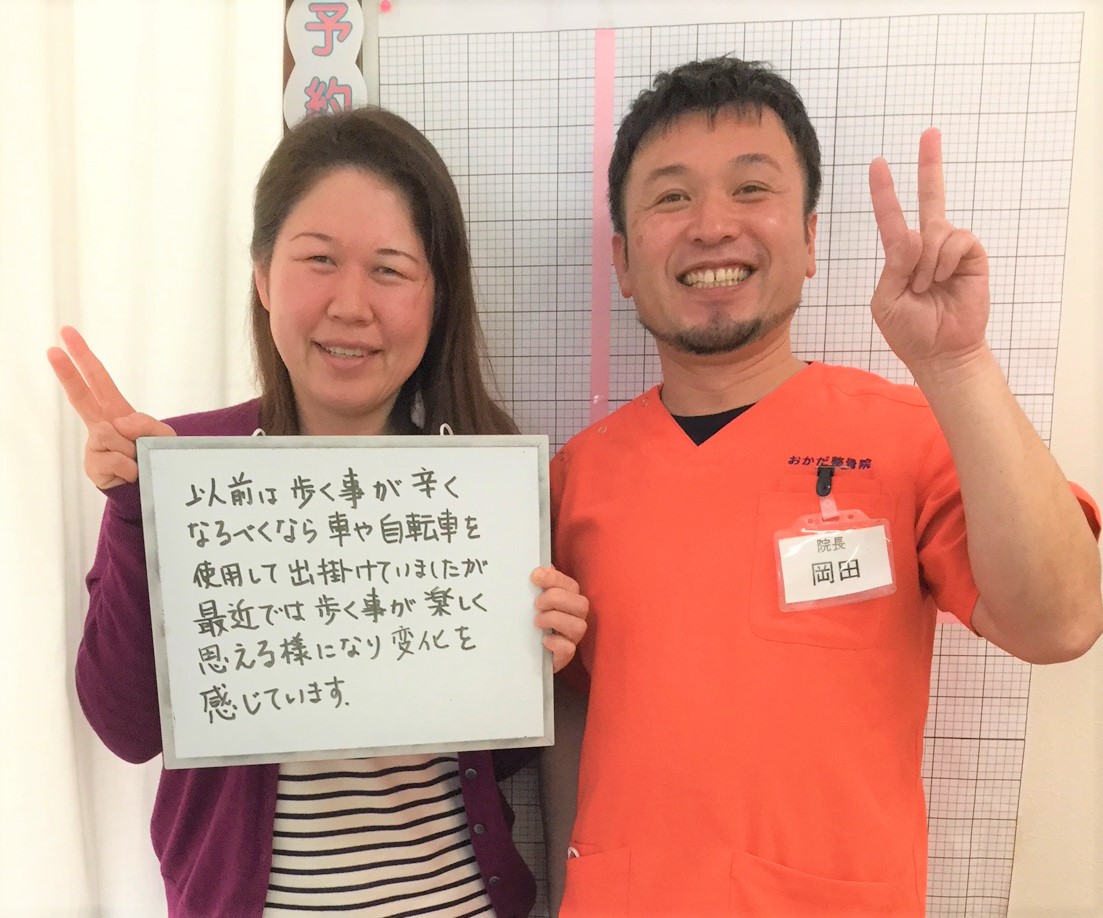 予約
以前は歩く事が辛く
なるべくなら車や自転車を
使用して出掛けていましたが
最近では歩く事が楽しく
思える様になり変化を
感じています.
おかだ整骨院
院長
岡田